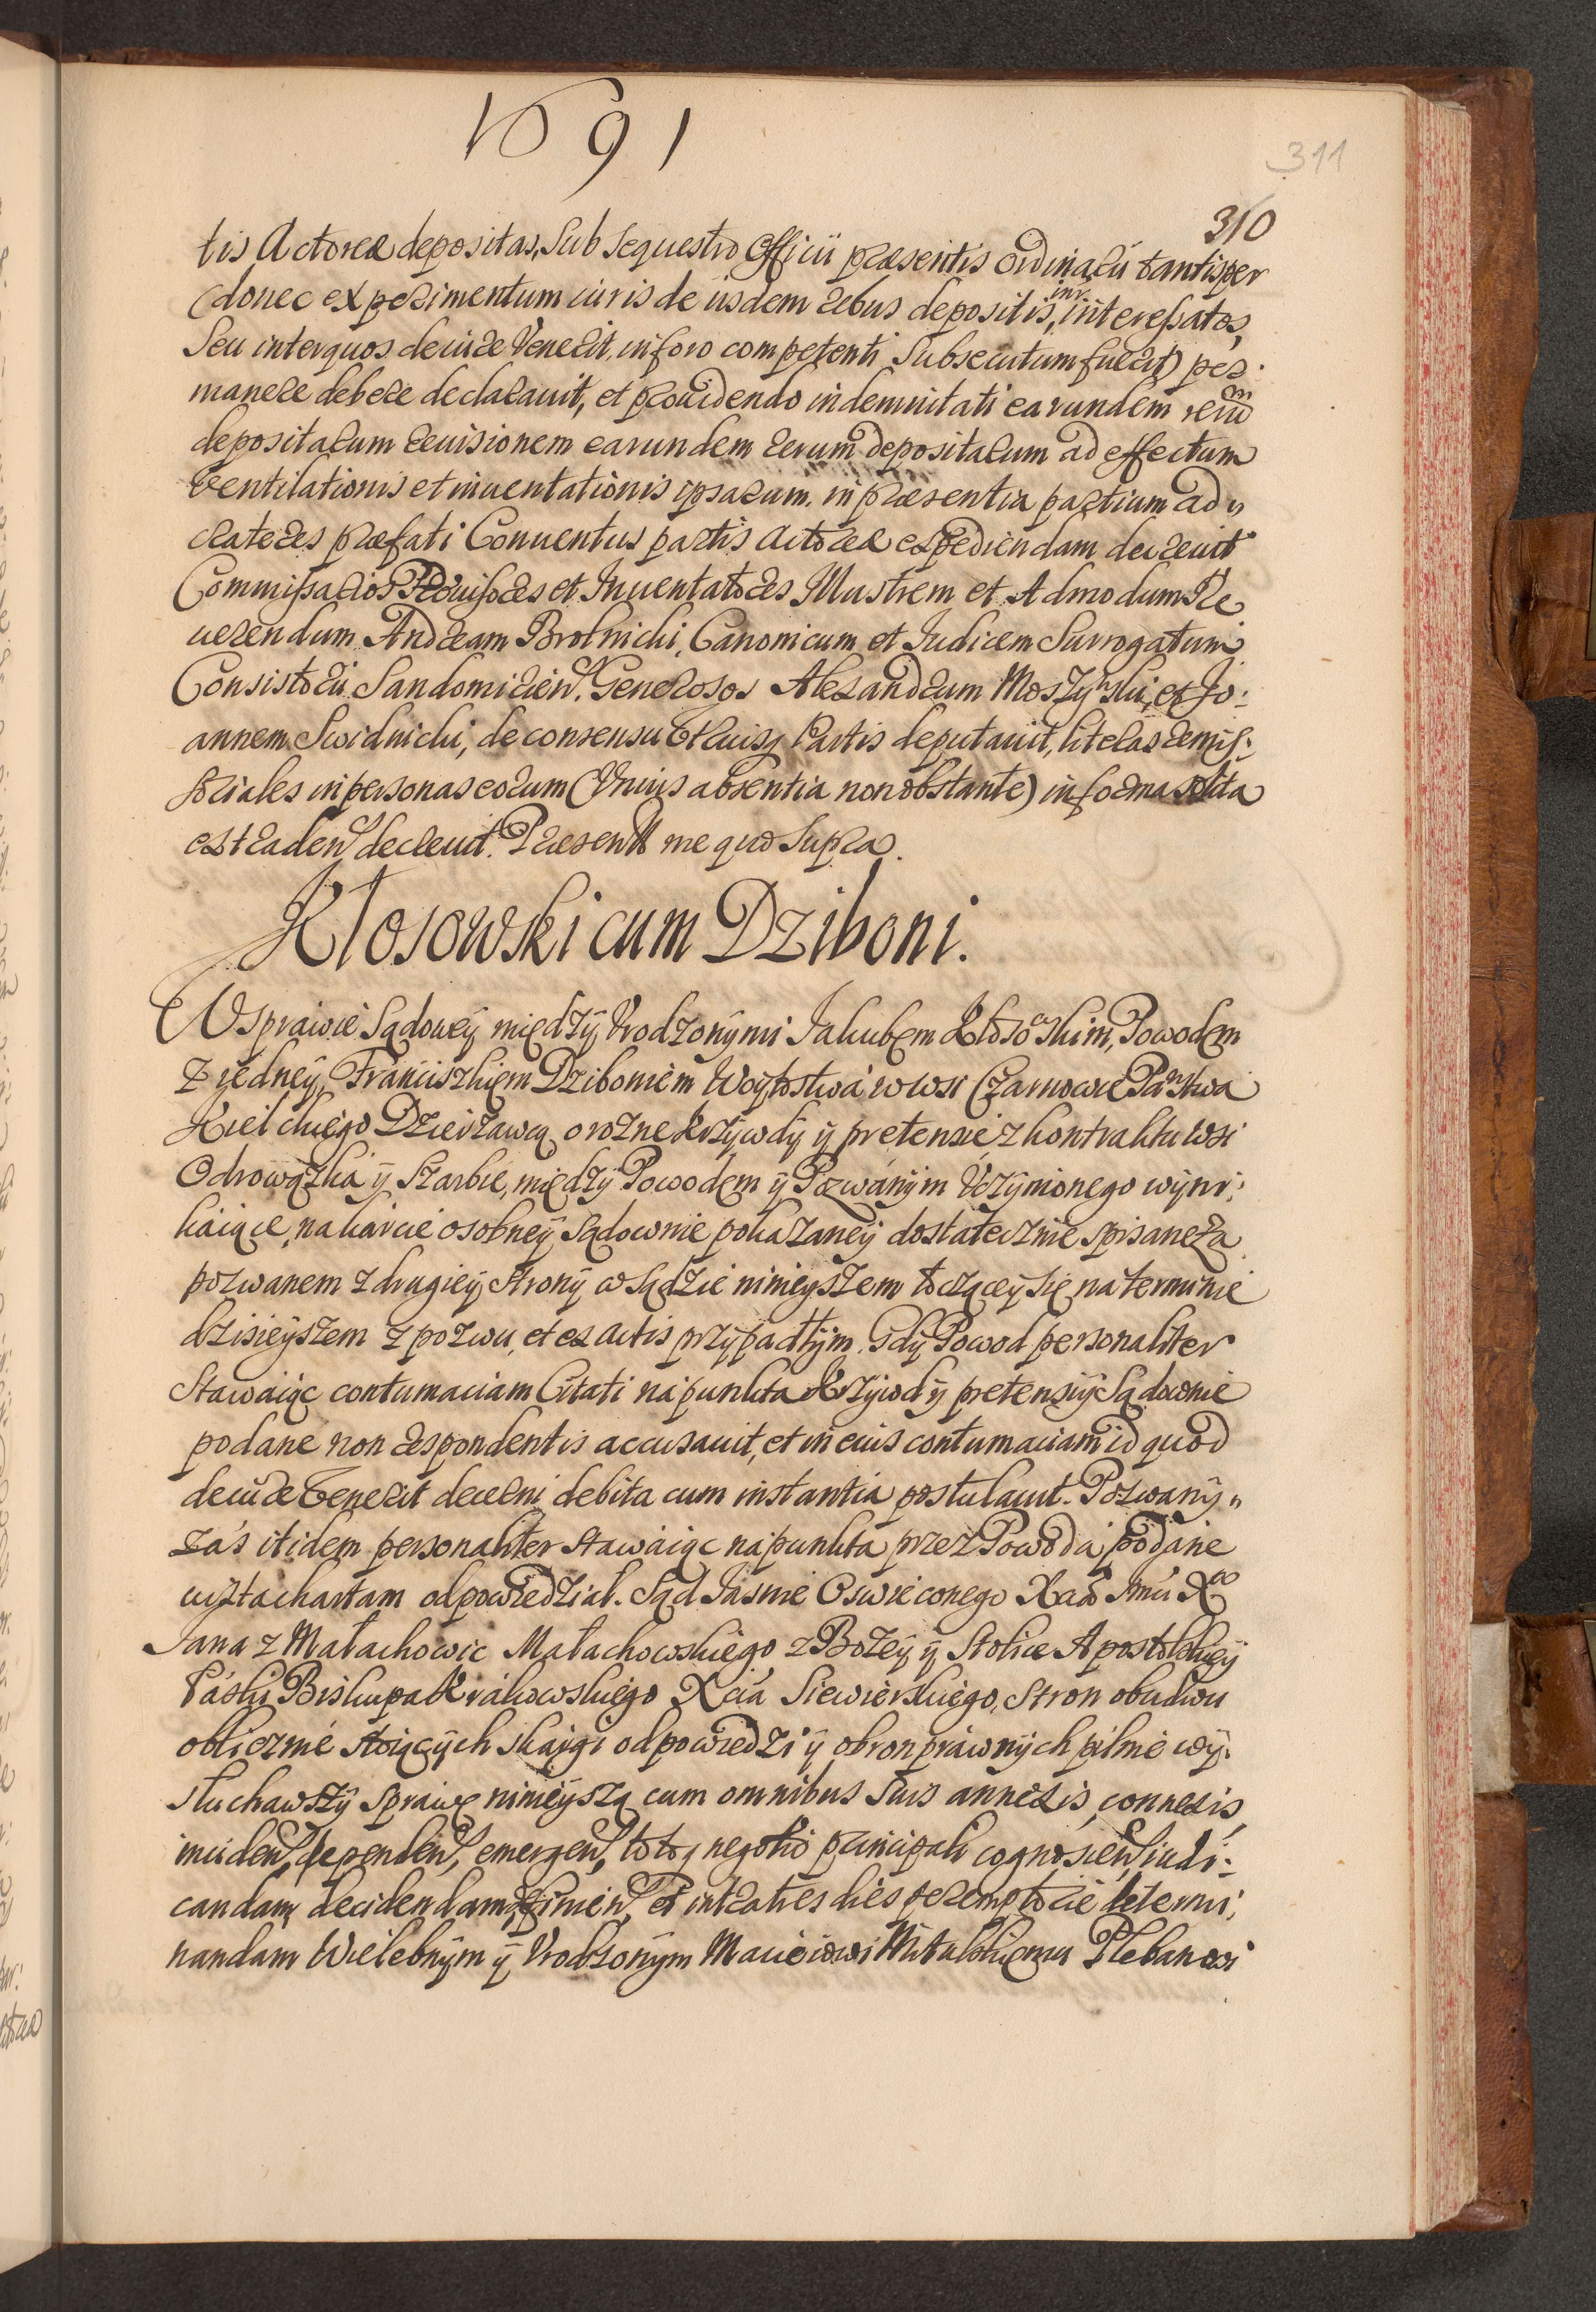 1691
311
310
tis Actoreæ depositas, Sub sequestro Officii præsentis ordinarii tantisper
(donec experimentum iuris de iisdem rebus depositis, int̃ interessatos,
Seu inter quos de iure Venerit, in foro competenti Subsecutum fuerit) per:
manere debere declarauit, et prouidendo indemnitati earundem rerũm
depositarum reuisionem earundem rerum depositarum ad effectum
Ventilationis et inuentationis ipsarum, in præsentia partium ad
crateres præfati Conuentus partis Actoreæ expediendam decreuit
Commissarios Prouisores et Inuentatores Illustrem et Admodum Re
uerendum Andream Brotnicki, Canonicum et Iudicem Surrogatum
Consistorii Sandomirien̄. Generosos Alexandrum Moszyński, et Jo:
annem Swidnicki, de consensu Vtriusq Partis deputauit, literas remis:
soriales in personas eorum (Vnius absentia non obstante) in forma solita
extraden̄ decreuit. Præsentt me quo Supra.
Kłosowski cum Dziboni.
W sprawie Sądowey między Vrodzonymi Jakubem Kłosowskim, Powodem
z iedney, Franciszkiem Dziboniem Woytostwa w wsi Czarnowie Państwa
Kielckiego Dzierzawcą, o rozne krzywdy y pretensie z kontraktu wsi
Odrowązka y Szarbie, między Powodem y Pozwanym Vczynionego wyni:
kaiące, na karcie osobney Sądownie pokazaney dostatecznie spisane Za
pozwanem z drugiey strony w Sądzie ninieyszem toczącey się na terminie
dzisieyszem z pozwu, et ex actis przypadłym. Gdy Powod personaliter
Stawaiąc contumaciam Citati na punkta Krzywd y pretensiy Sądownie
podane non respondentis accusauit, et in eius contumaciam id quod
de iure Venerit decerni debita cum instantia postulauit. Pozwany
zaś itidem personaliter stawaiąc na punkta przez Powoda podane
iuxta chartam odpowiedział. Sąd Jasnie Oswieconego Xcia Jmci Xa
Jana z Małachowic Małachowskiego z Bozey y Stolice Apostolskiey
Łaski Biskupa Krakowskiego Xcia Siewierskiego, Stron obudwu
oblicznie stoiących skargi odpowiedzi y obron prawnych pilnie wy:
słuchawszy sprawę ninieyszą cum omnibus suis annexis, connexis,
inciden̄, dependen̄, emergen̄, totoq negotio principali cognoscen̄, iudi:
candam, decidendam, finien̄, et intra tres dies peremptorie determi:
nandam Wielebnym y Vrodzonym Macieiowi Mikulskiemu Plebanowi